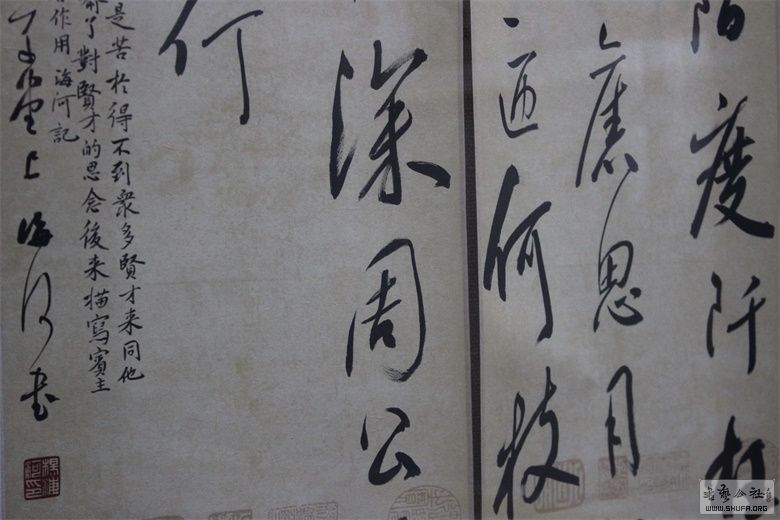 陌度阡枉
舊恩月
匝何枝
深周公
行
是苦於得不到衆多賢才来同他
了對賢才的思念後来描寫賓主
作用 海河記
堂上 海河書
书艺公社
WWW.SHUFA.ORG